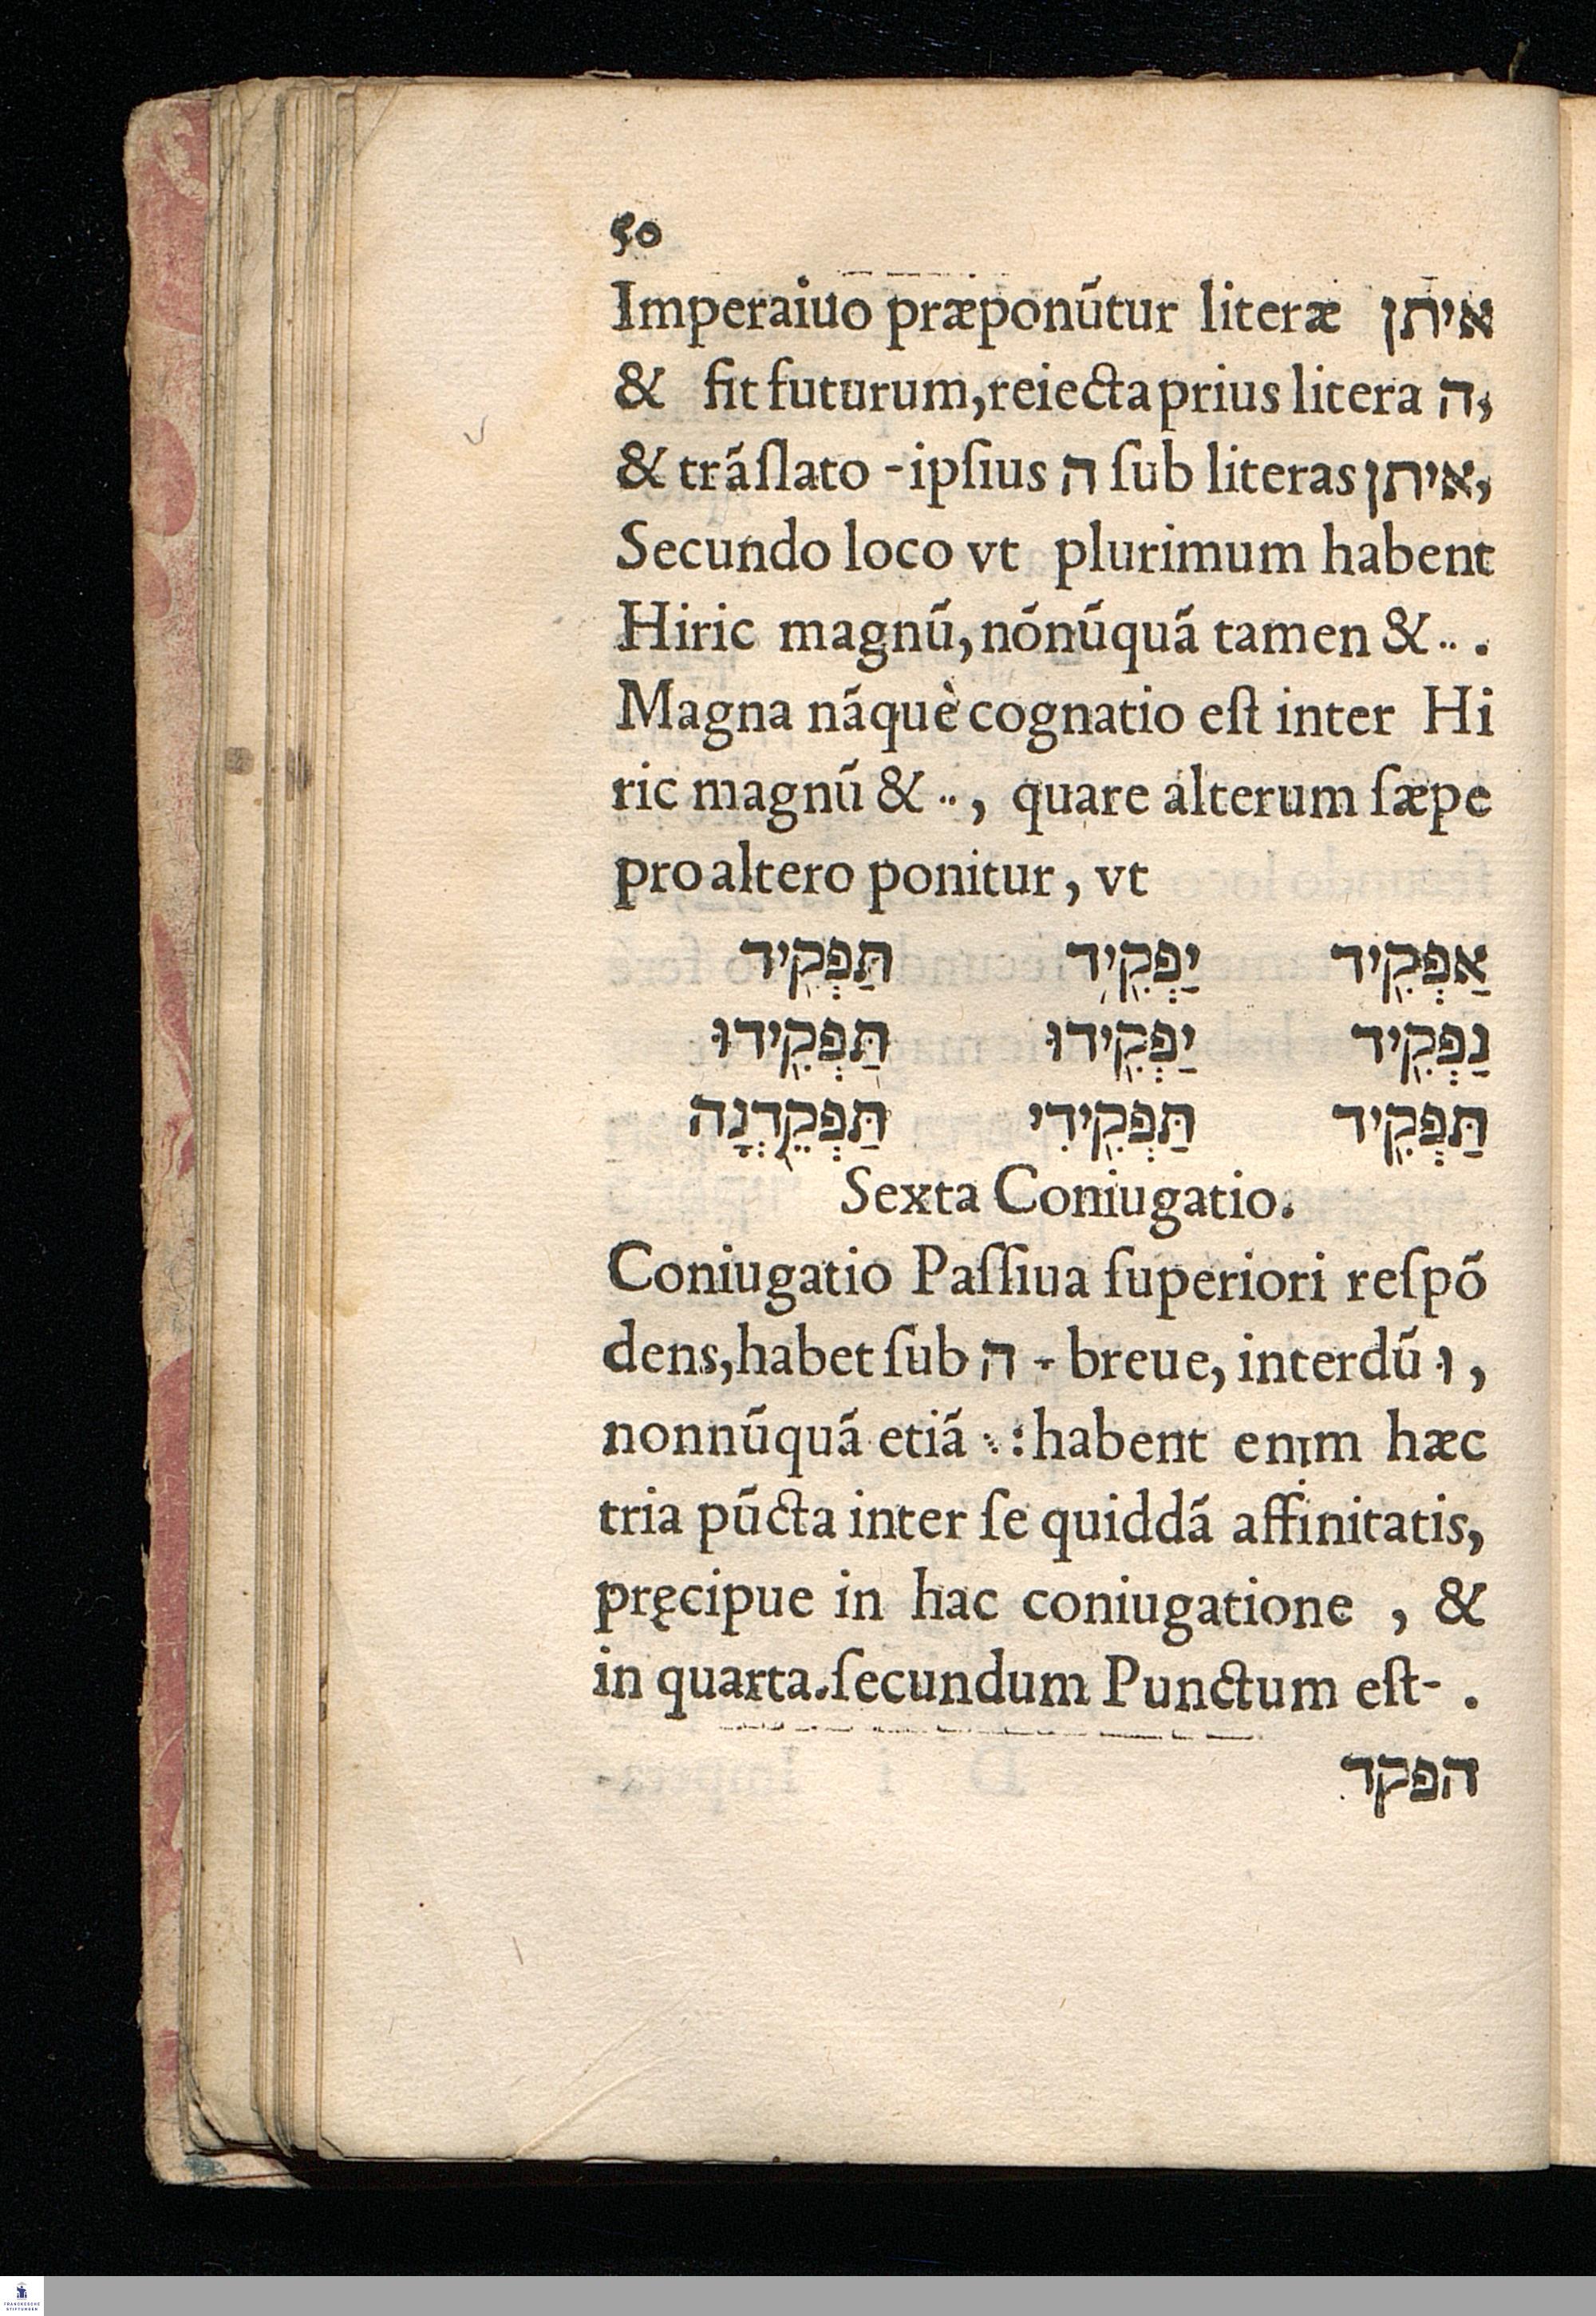 50
Imperaiuo præponũtur literæ איתן
& fit futurum,reiecta prius litera ה,
& trãſlato -ipſius ה ſub literas איתן,
Secundo loco vt plurimum habent
Hiric magnũ, nõnũquã tamen & ·· .
Magna nãquè cognatio eſt inter Hi
ric magnũ & ·· , quare alterum ſæpe
pro altero ponitur, vt
אַפְקִיד יַפְקִיד תַּפְקִיד
נַפְקִיד יַפְקִידוּ תַּפְקִידוּ
תַּפְקִיד תַּפְקִידִי תַּפְקֵדְנָה
Sexta Coniugatio.
Coniugatio Paſſiua ſuperiori reſpõ
dens,habet ſub ה ָ breue, interdũ וּ,
nonnũquã etiã ֻ :habent enim hæc
tria pũcta inter ſe quiddã affinitatis,
pręcipue in hac coniugatione , &
in quarta.ſecundum Punctum eſt- .
הפקד